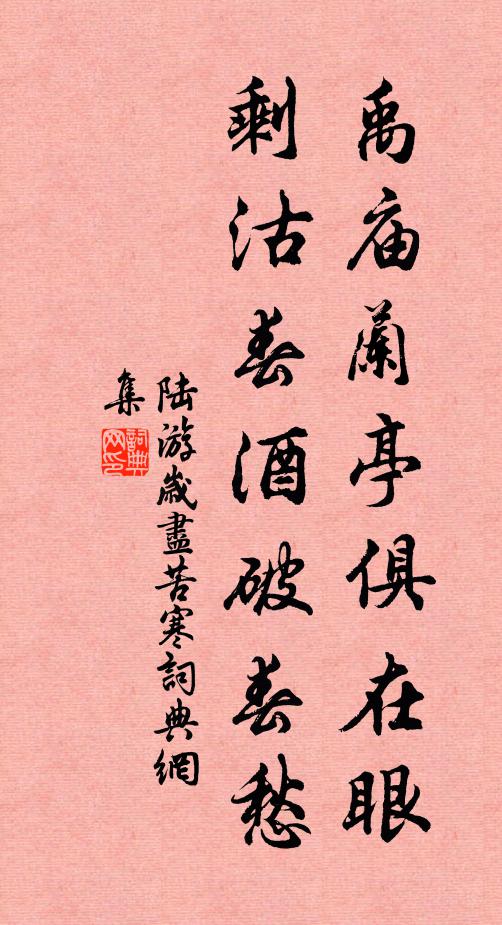 禹庙蘭亭俱在眼
剩沽春酒破春愁
陆游歲盡苦寒詞典網
集
詞典
网印